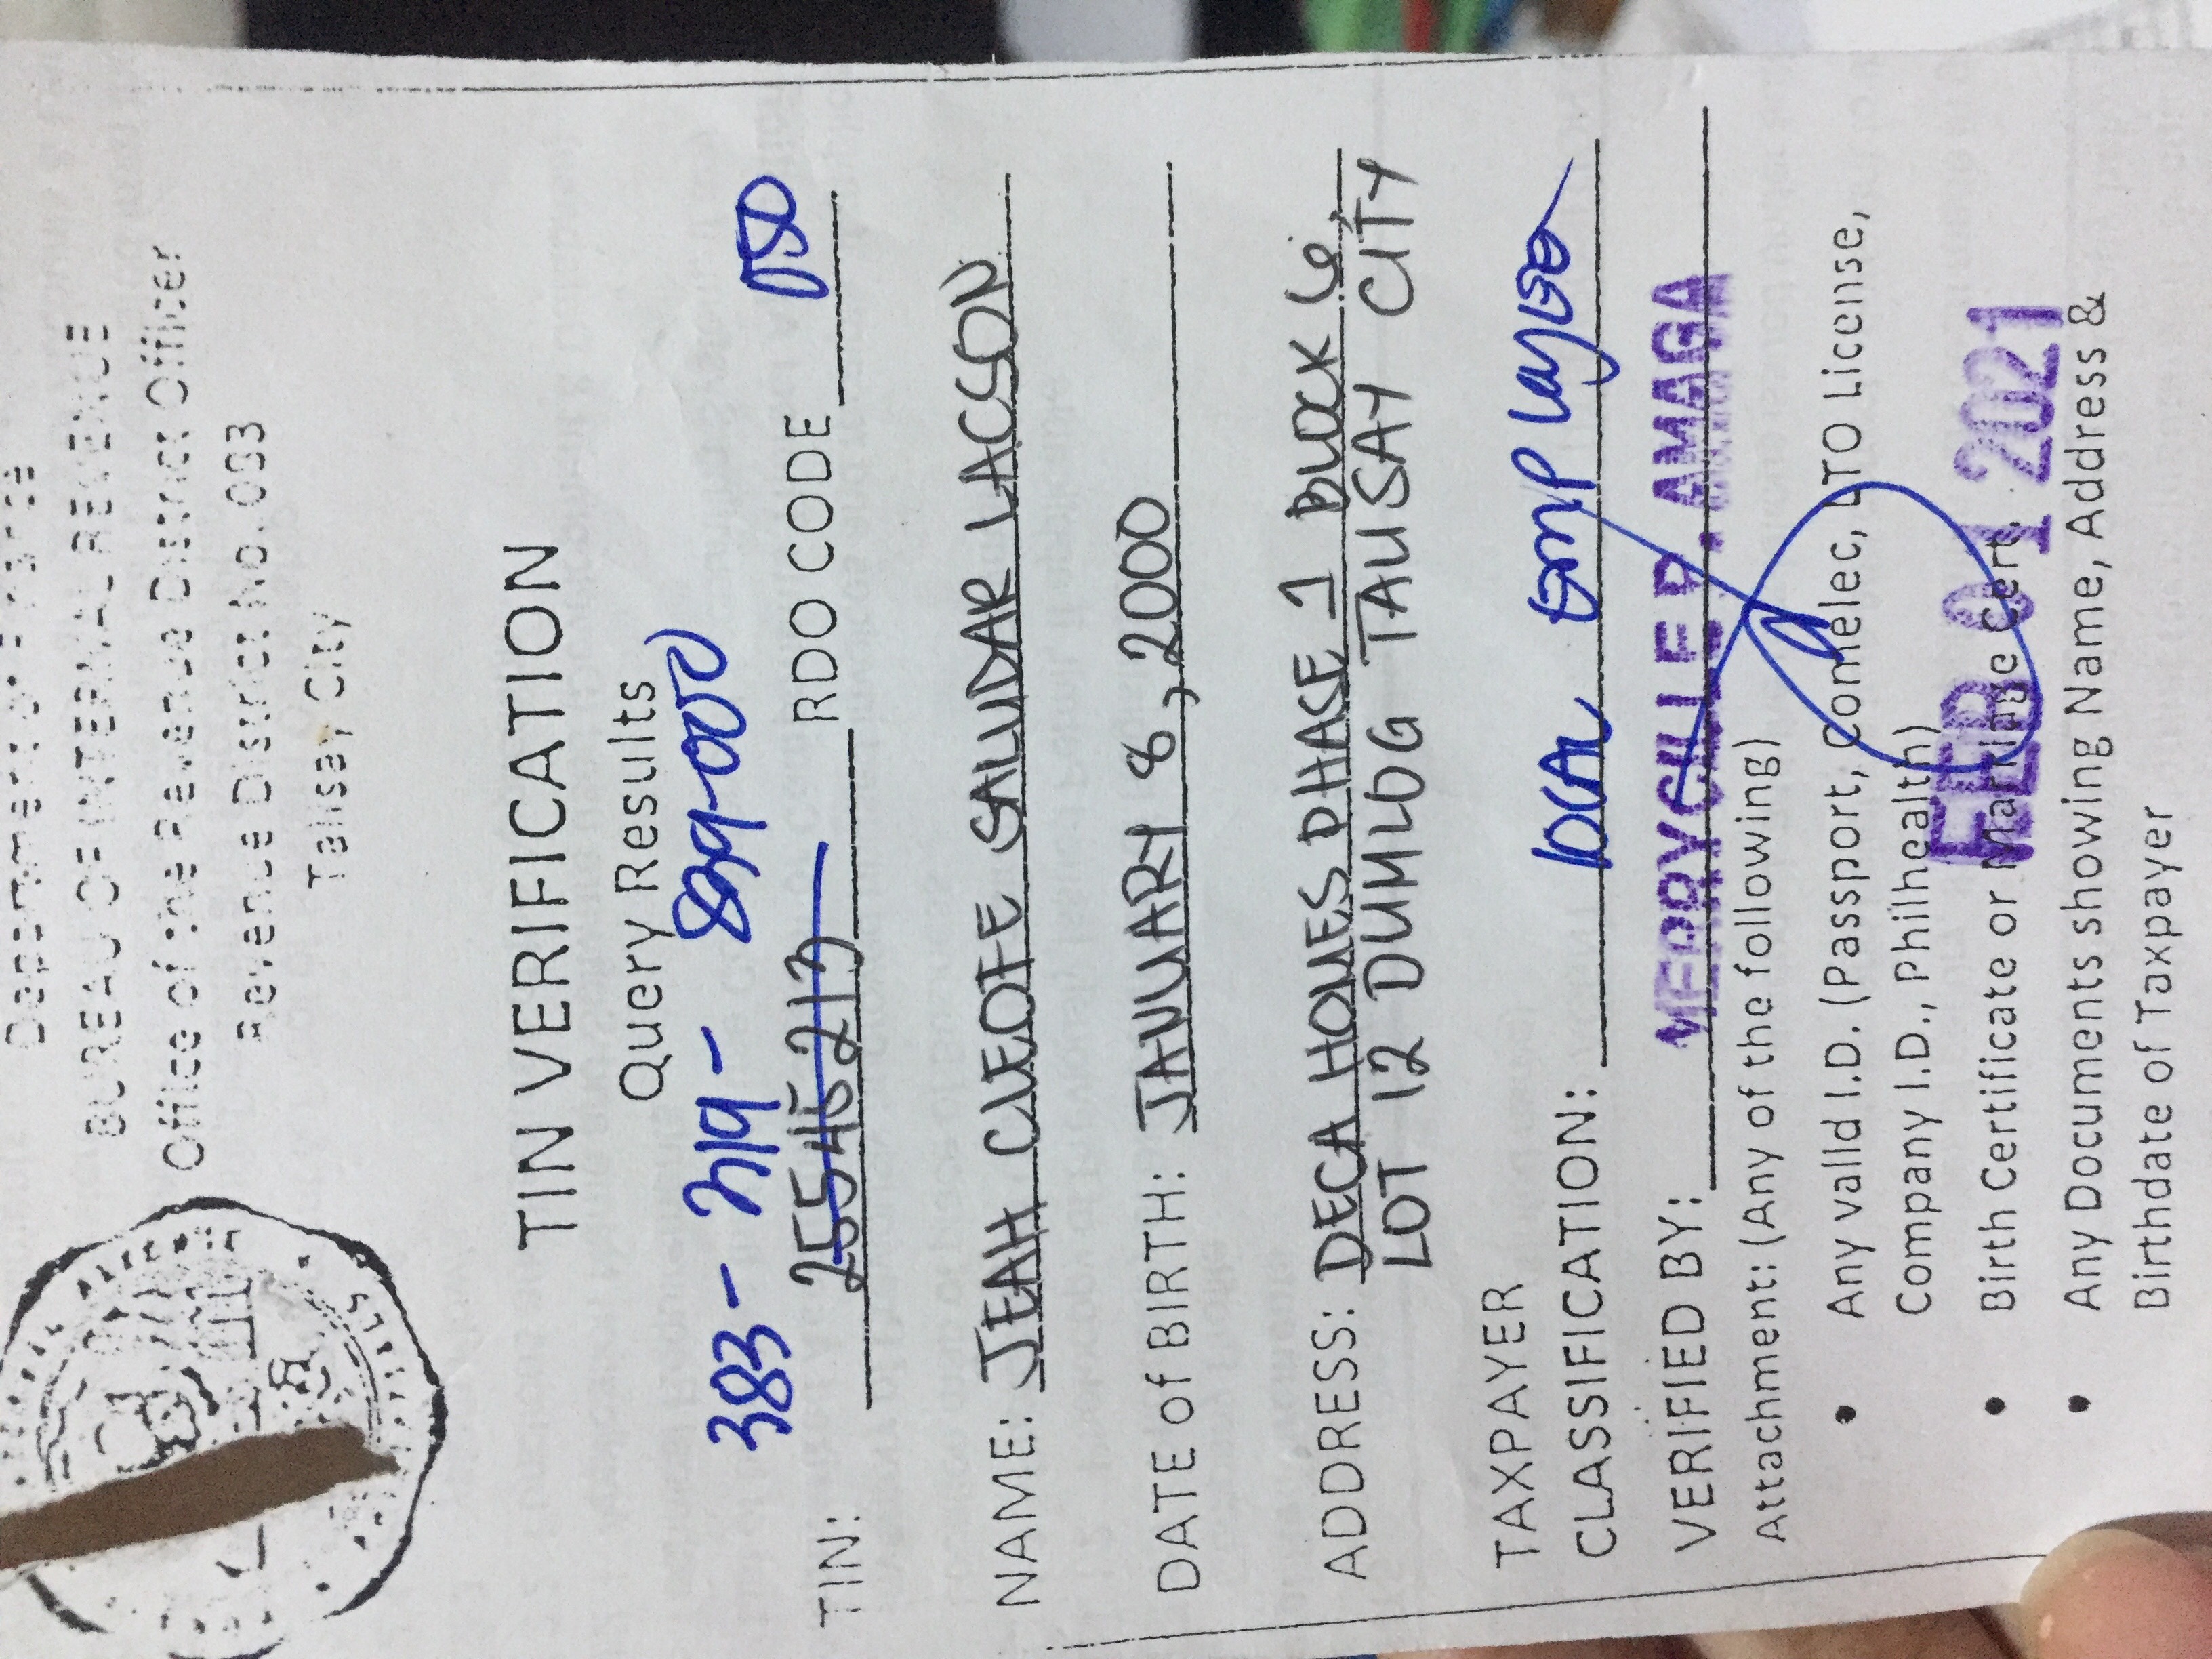 Department of Finance
BUREAU OF INTERNAL REVENUE
Office of the Revenue District Officer
Revenue District No. 083
Talisay City
TIN VERIFICATION
Query Results
383 - 719 - 899-000
TIN: 25546213 RDO CODE 050
NAME: JEAH CLEOFE SALUDAR LACSON
DATE of BIRTH: JANUARY 8, 2000
ADDRESS: DECA HOMES PHASE 1 BLOCK 6,
LOT 12 DUMLOG TALISAY CITY
TAXPAYER
CLASSIFICATION: local employee
VERIFIED BY: MERRYGILLE P. AMAGA
Attachment: (Any of the following)
• Any valid I.D. (Passport, Comelec, LTO License,
Company I.D., Philhealth)
• Birth Certificate or Marriage Cert.
FEB 01 2021
• Any Documents showing Name, Address &
Birthdate of Taxpayer